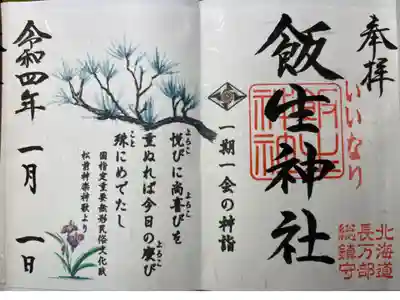 奉拝
いいなり
飯生神社
飯生神社
北海道
長万部
総鎮守
一期一会の神詣
悦びに尚喜びを
重ぬれば今日の慶び
殊にめでたし
国指定重要無形民俗文化財
松前神楽神歌より
令和四年 一月 一日